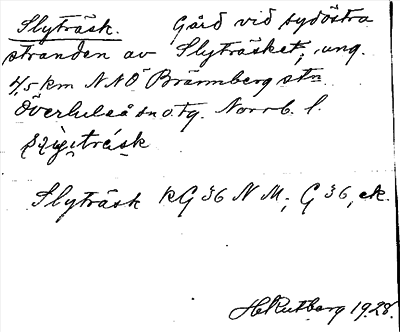 Slyträsk. Gård vid sydöstra
stranden av Slyträsket, ung.
4,5 km NNÖ Brännberg stn
Överluleå sn o. tg. Norrb. l.
Slyträsk KG 36 NM; G 36, ek.
H. Rutberg 1928.